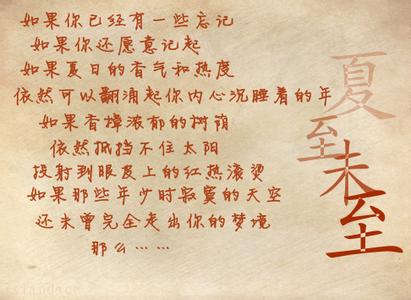 如果你已经有一些忘记
如果你还愿意记起
如果夏日的香气和热度
依然可以翻涌起你内心沉睡着的年
如果香樟浓郁的树荫
依然抵挡不住太阳
投射到眼皮上的红热滚烫
如果那些年少时寂寞的天空
还未曾完全走出你的梦境
那么……
夏至未至